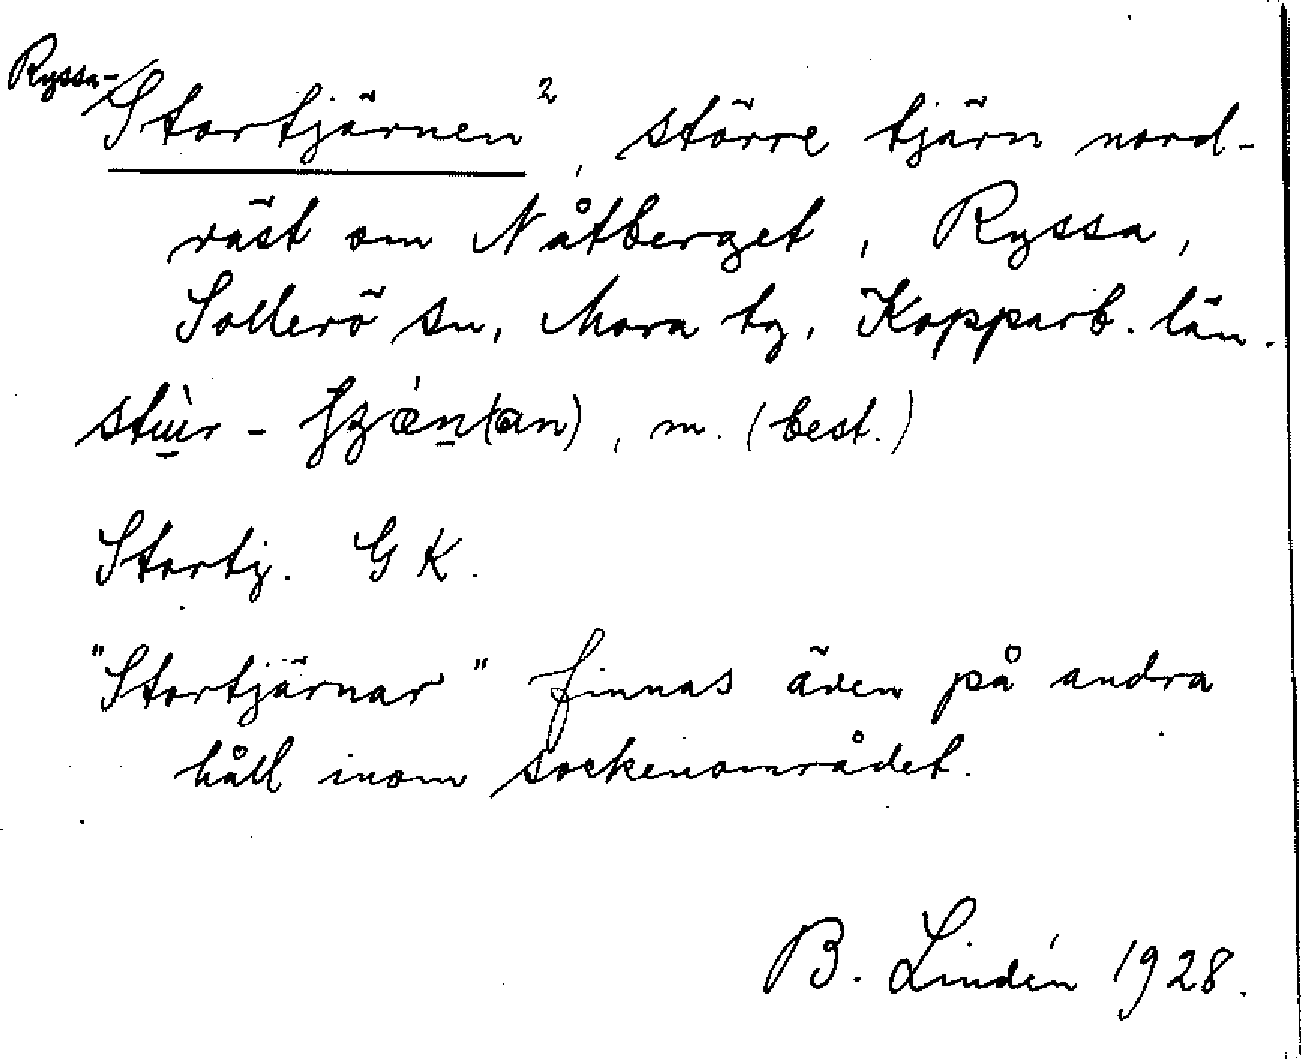 Ryssa-Stortjärnen², större tjärn nord-
väst om Nåtberget, Ryssa,
Sollerö sn, Mora tg, Kopparb. län.
m. (best.)
Stortj. GK.
"Stortjärnar" finnas även på andra
håll inom sockenområdet.
B. Lindén 1928.